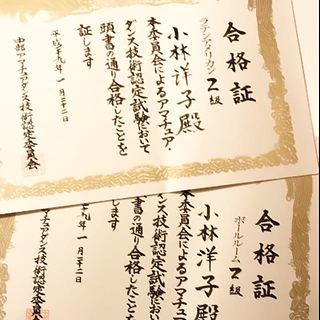 合格証
ラテンアメリカン 2級
小林洋子殿
本委員会によるアマチュア・
ダンス技術認定試験において
頭書の通り合格したことを
証します
平成十九年一月二十二日
中部アマチュアダンス技術認定委員会
合格証
ボールルーム 2級
小林洋子殿
本委員会によるアマチュア
ダンス技術認定試験において
書の通り合格したことを
します
十九年一月二十二日
アマチュアダンス技術認定委員会